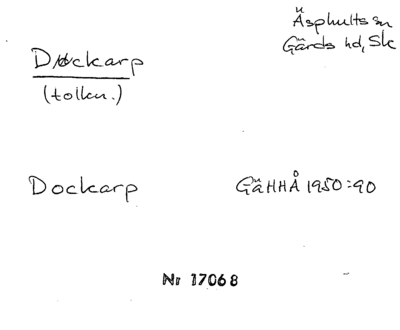 Äsphults sn
Gärds hd, Sk
Dockarp
(tolkn.)
Dockarp GäHHÅ 1950:90
Nr 17068